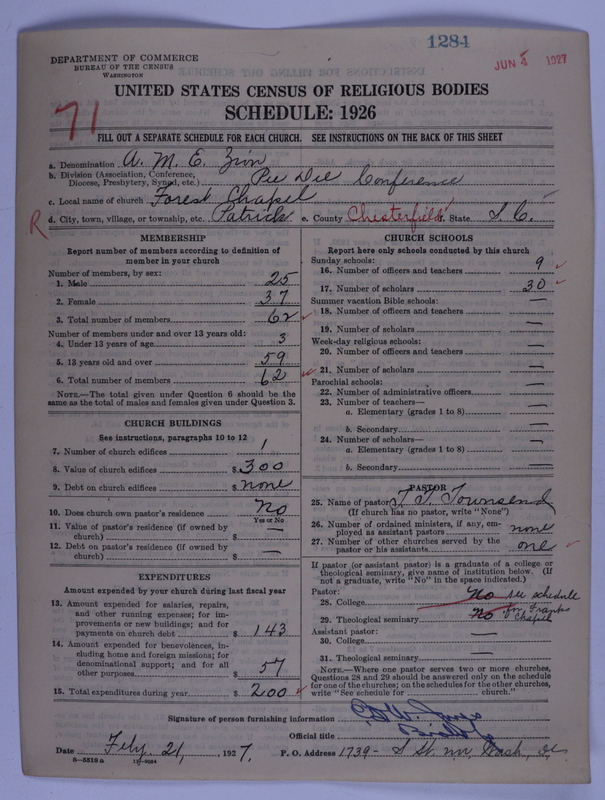 1284
JUN 4 1927
DEPARTMENT OF COMMERCE
BUREAU OF THE CENSUS
WASHINGTON
UNITED STATES CENSUS OF RELIGIOUS BODIES
SCHEDULE: 1926
71
FILL OUT A SEPARATE SCHEDULE FOR EACH CHURCH. SEE INSTRUCTIONS ON THE BACK OF THIS SHEET
a. Denomination A. M. E. Zion
b. Division (Association, Conference, Diocese, Presbytery, Synod, etc.) Pee Dee Conference
c. Local name of church Forest Chapel
R d. City, town, village, or township, etc. Patrick e. County Chesterfield f. State S. C.
MEMBERSHIP
Report number of members according to definition of member in your church
Number of members, by sex:
1. Male 25
2. Female 37
3. Total number of members 62
Number of members under and over 13 years old:
4. Under 13 years of age 3
5. 13 years old and over 59
6. Total number of members 62
NOTE.—The total given under Question 6 should be the same as the total of males and females given under Question 3.
CHURCH BUILDINGS
See instructions, paragraphs 10 to 12
7. Number of church edifices 1
8. Value of church edifices $ 300
9. Debt on church edifices $ none
10. Does church own pastor's residence No
Yes or No
11. Value of pastor's residence (if owned by church) $ —
12. Debt on pastor's residence (if owned by church) $ —
EXPENDITURES
Amount expended by your church during last fiscal year
13. Amount expended for salaries, repairs, and other running expenses; for improvements or new buildings; and for payments on church debt $ 143
14. Amount expended for benevolences, including home and foreign missions; for denominational support; and for all other purposes $ 57
15. Total expenditures during year $ 200
CHURCH SCHOOLS
Report here only schools conducted by this church
Sunday schools:
16. Number of officers and teachers 9
17. Number of scholars 30
Summer vacation Bible schools:
18. Number of officers and teachers —
19. Number of scholars —
Week-day religious schools:
20. Number of officers and teachers —
21. Number of scholars —
Parochial schools:
22. Number of administrative officers —
23. Number of teachers—
a. Elementary (grades 1 to 8) —
b. Secondary —
24. Number of scholars—
a. Elementary (grades 1 to 8) —
b. Secondary —
PASTOR
25. Name of pastor Townsend
(If church has no pastor, write "None")
26. Number of ordained ministers, if any, employed as assistant pastors none
27. Number of other churches served by the pastor or his assistants one
If pastor (or assistant pastor) is a graduate of a college or theological seminary, give name of institution below. (If not a graduate, write "No" in the space indicated.)
Pastor:
28. College No see schedule
29. Theological seminary No for Chapel
Assistant pastor:
30. College —
31. Theological seminary —
NOTE.—Where one pastor serves two or more churches, Questions 28 and 29 should be answered only on the schedule for one of the churches; on the schedules for the other churches, write "See schedule for church."
Signature of person furnishing information
Official title
Date Feby. 21, 1927. P. O. Address 1739- S St. NW, Wash, DC
8—5518a